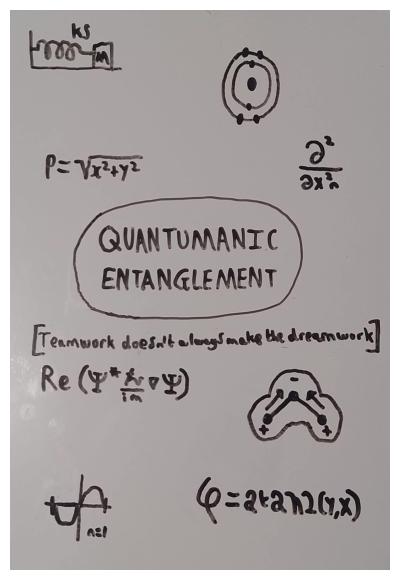 ks
m
P=√x²+y²
∂²
∂x²n
QUANTUMANIC
ENTANGLEMENT
[Teamwork doesn't always make the dreamwork]
Re (Ψ* ħ/im ∇ Ψ)
-
+ +
n=1
φ=atan2(y,x)